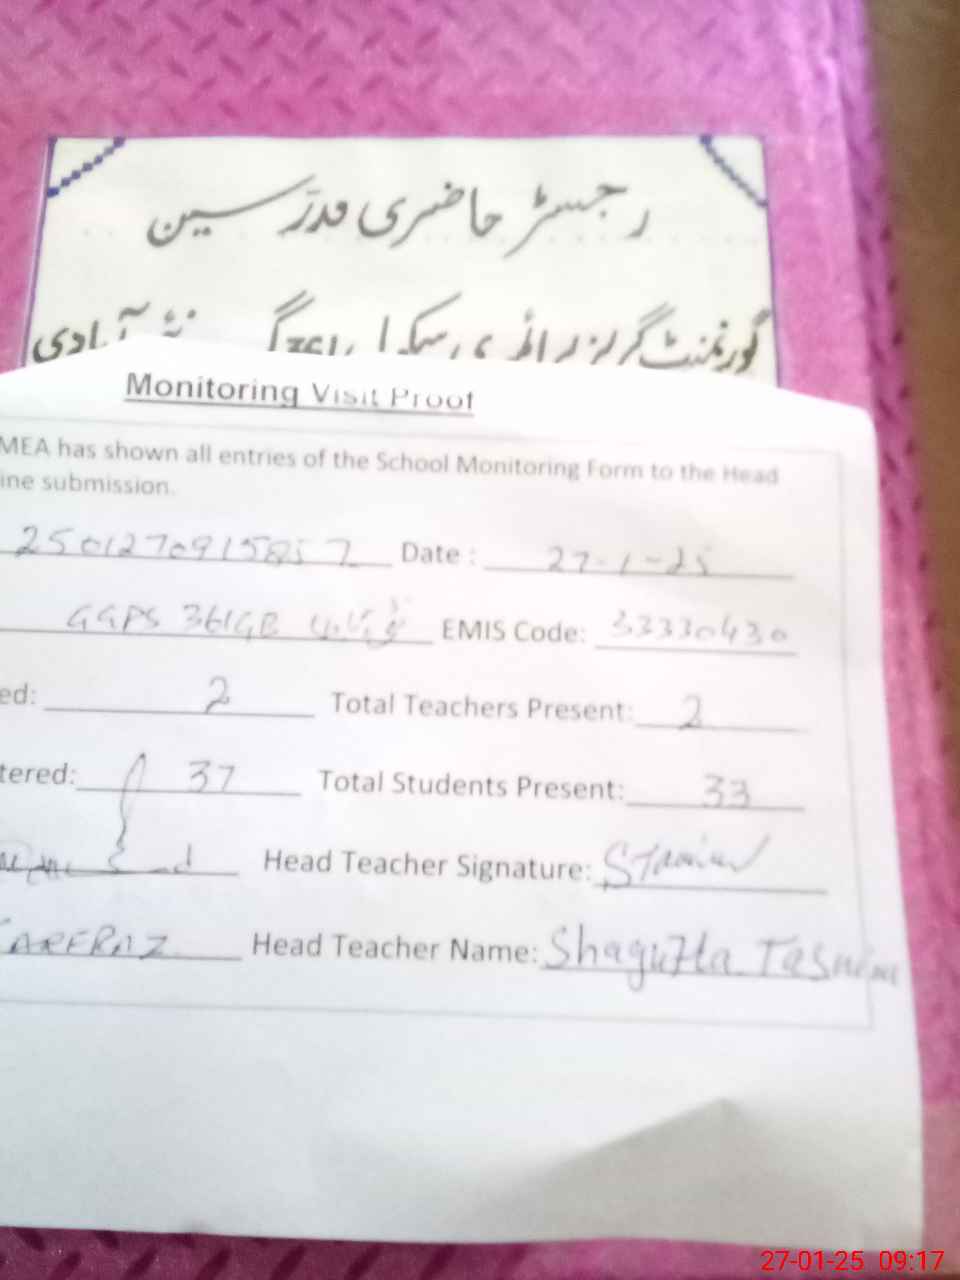 رجسٹر حاضری مدرسین
گورنمنٹ گرلز پرائمری سکول 361 گ ب نئی آبادی
Monitoring Visit Proof
MEA has shown all entries of the School Monitoring Form to the Head
ine submission.
250127091585 7 Date : 27-1-25
GGPS 361GB نئی آبادی EMIS Code: 33330430
ed: 2 Total Teachers Present: 2
tered: 37 Total Students Present: 33
Head Teacher Signature: STasnim
SARFRAZ Head Teacher Name: Shagufta Tasnim
27-01-25 09:17